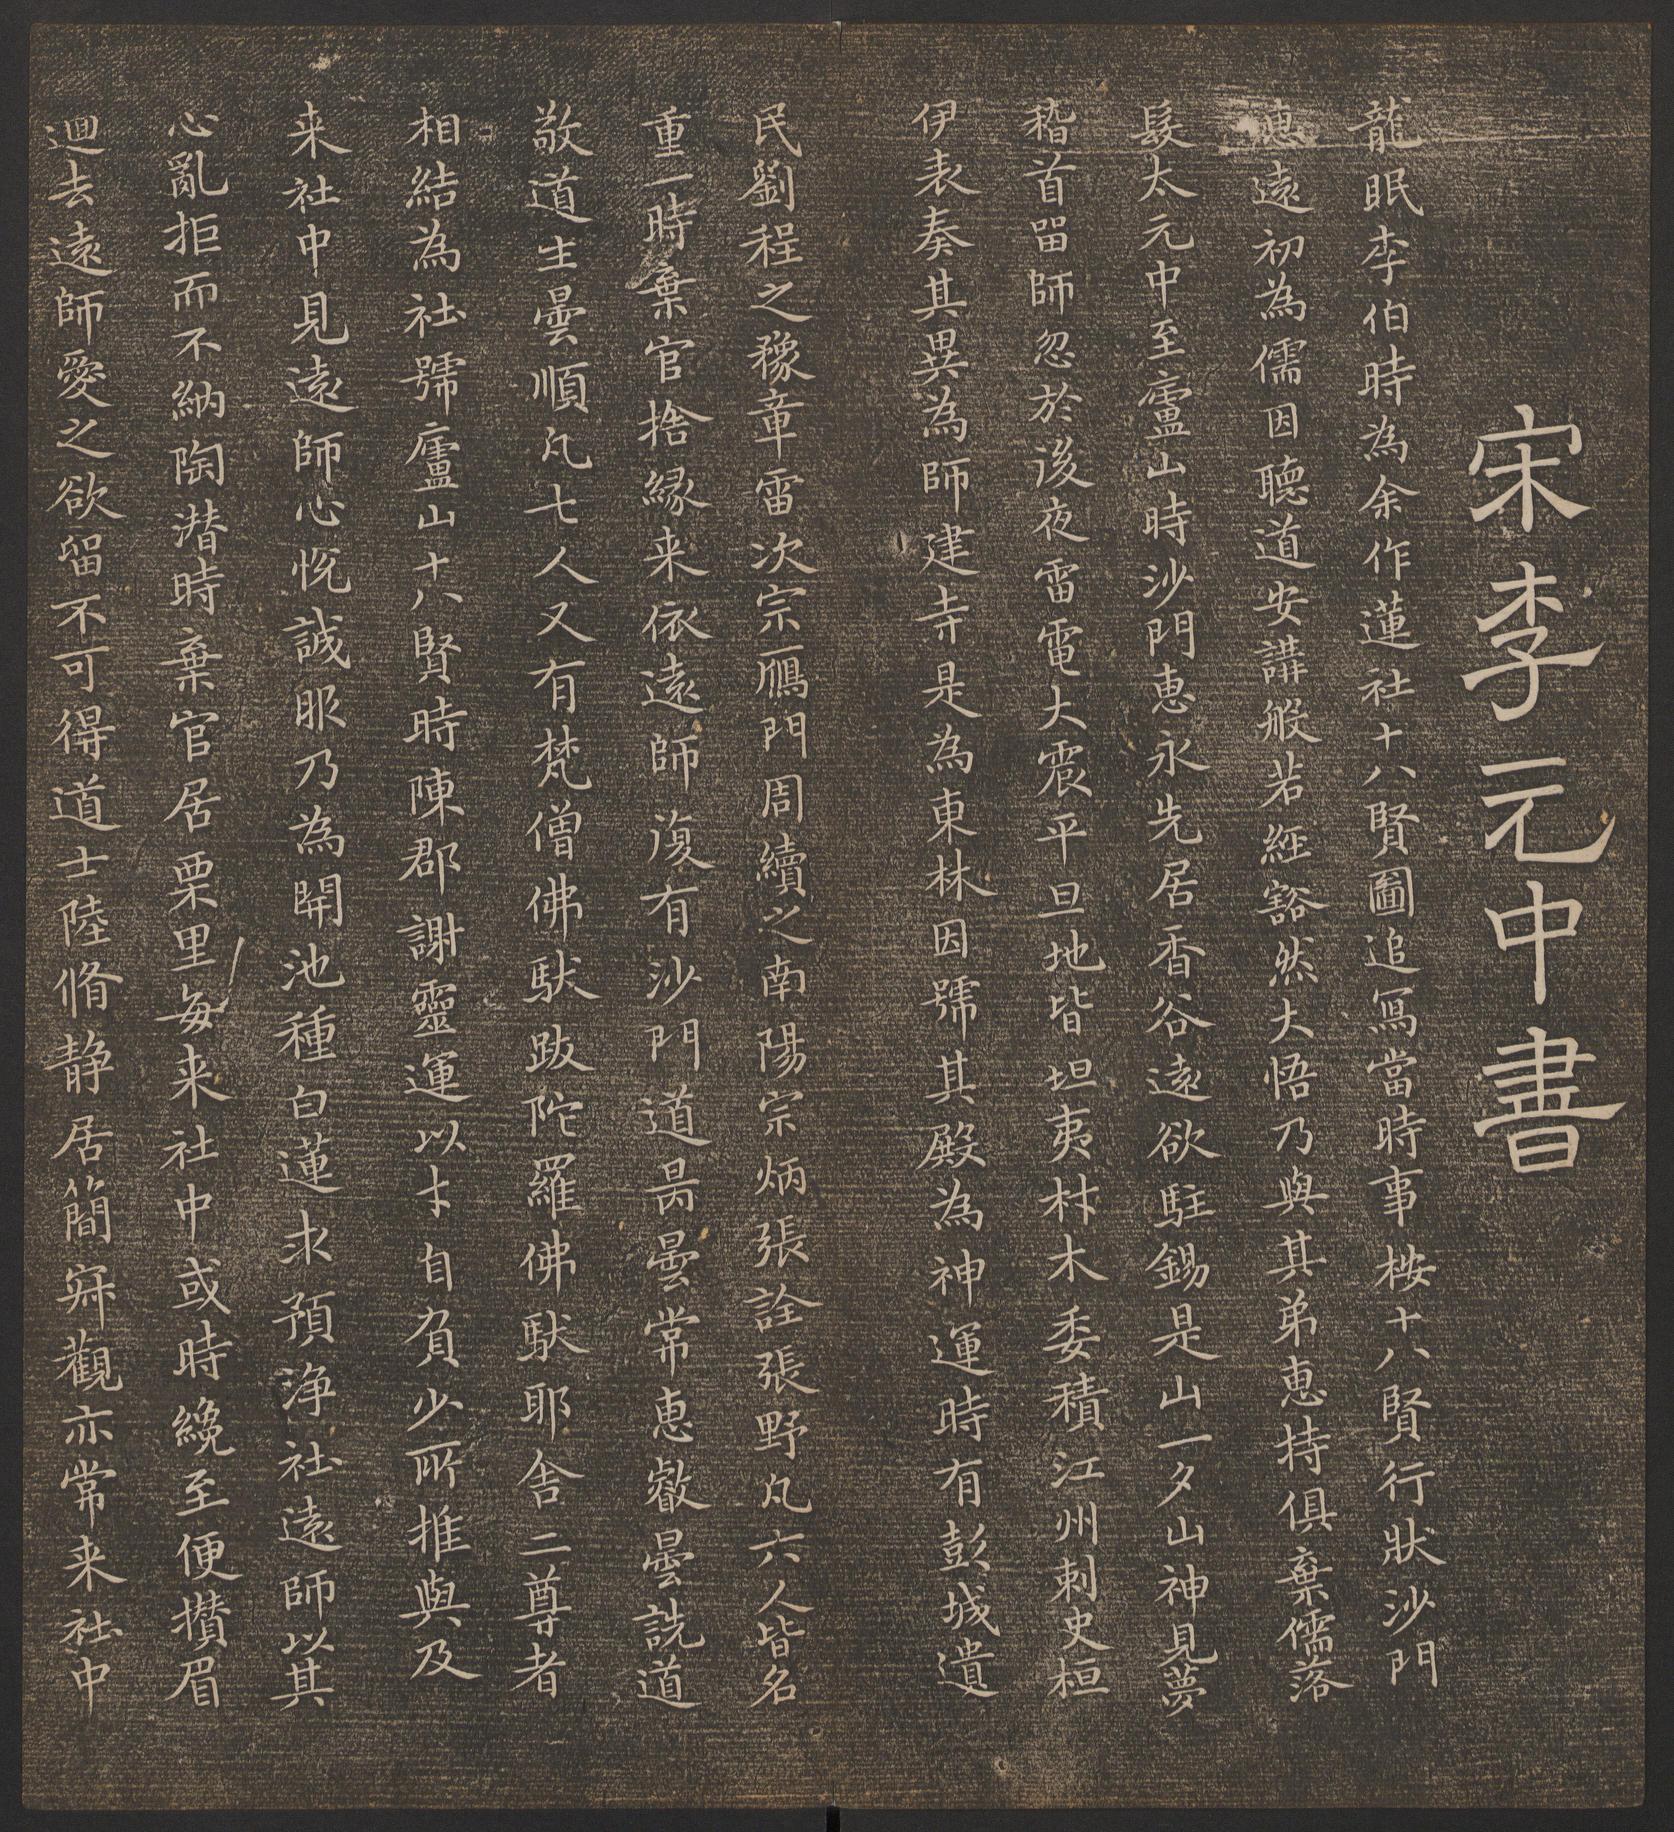 宋李元中書
龍眠李伯時為余作蓮社十八賢圖追寫當時事桉十八賢行狀沙門
惠遠初為儒因聽道安講般若經豁然大悟乃與其弟惠持俱棄儒落
髮太元中至廬山時沙門惠永先居香谷遠欲駐錫是山一夕山神見夢
稽首留師忽於後夜雷電大震平旦地皆坦夷材木委積江州刺史桓
伊表奏其異為師建寺是為東林因號其殿為神運時有彭城遺
民劉程之豫章雷次宗鴈門周續之南陽宗炳張詮張野凡六人皆名
重一時棄官捨緣来依遠師復有沙門道昺曇常惠叡曇詵道
敬道生曇順凡七人又有梵僧佛馱跋陀羅佛馱耶舍二尊者
相結為社號廬山十八賢時陳郡謝靈運以才自負少所推與及
来社中見遠師心悅誠服乃為開池種白蓮求預淨社遠師以其
心亂拒而不納陶潜時棄官居栗里每来社中或時纔至便攢眉
迴去遠師愛之欲留不可得道士陸脩静居簡寂觀亦常来社中